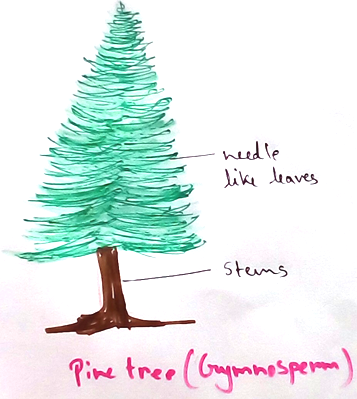 needle
like leaves
stems
Pine tree (Gymnosperm)